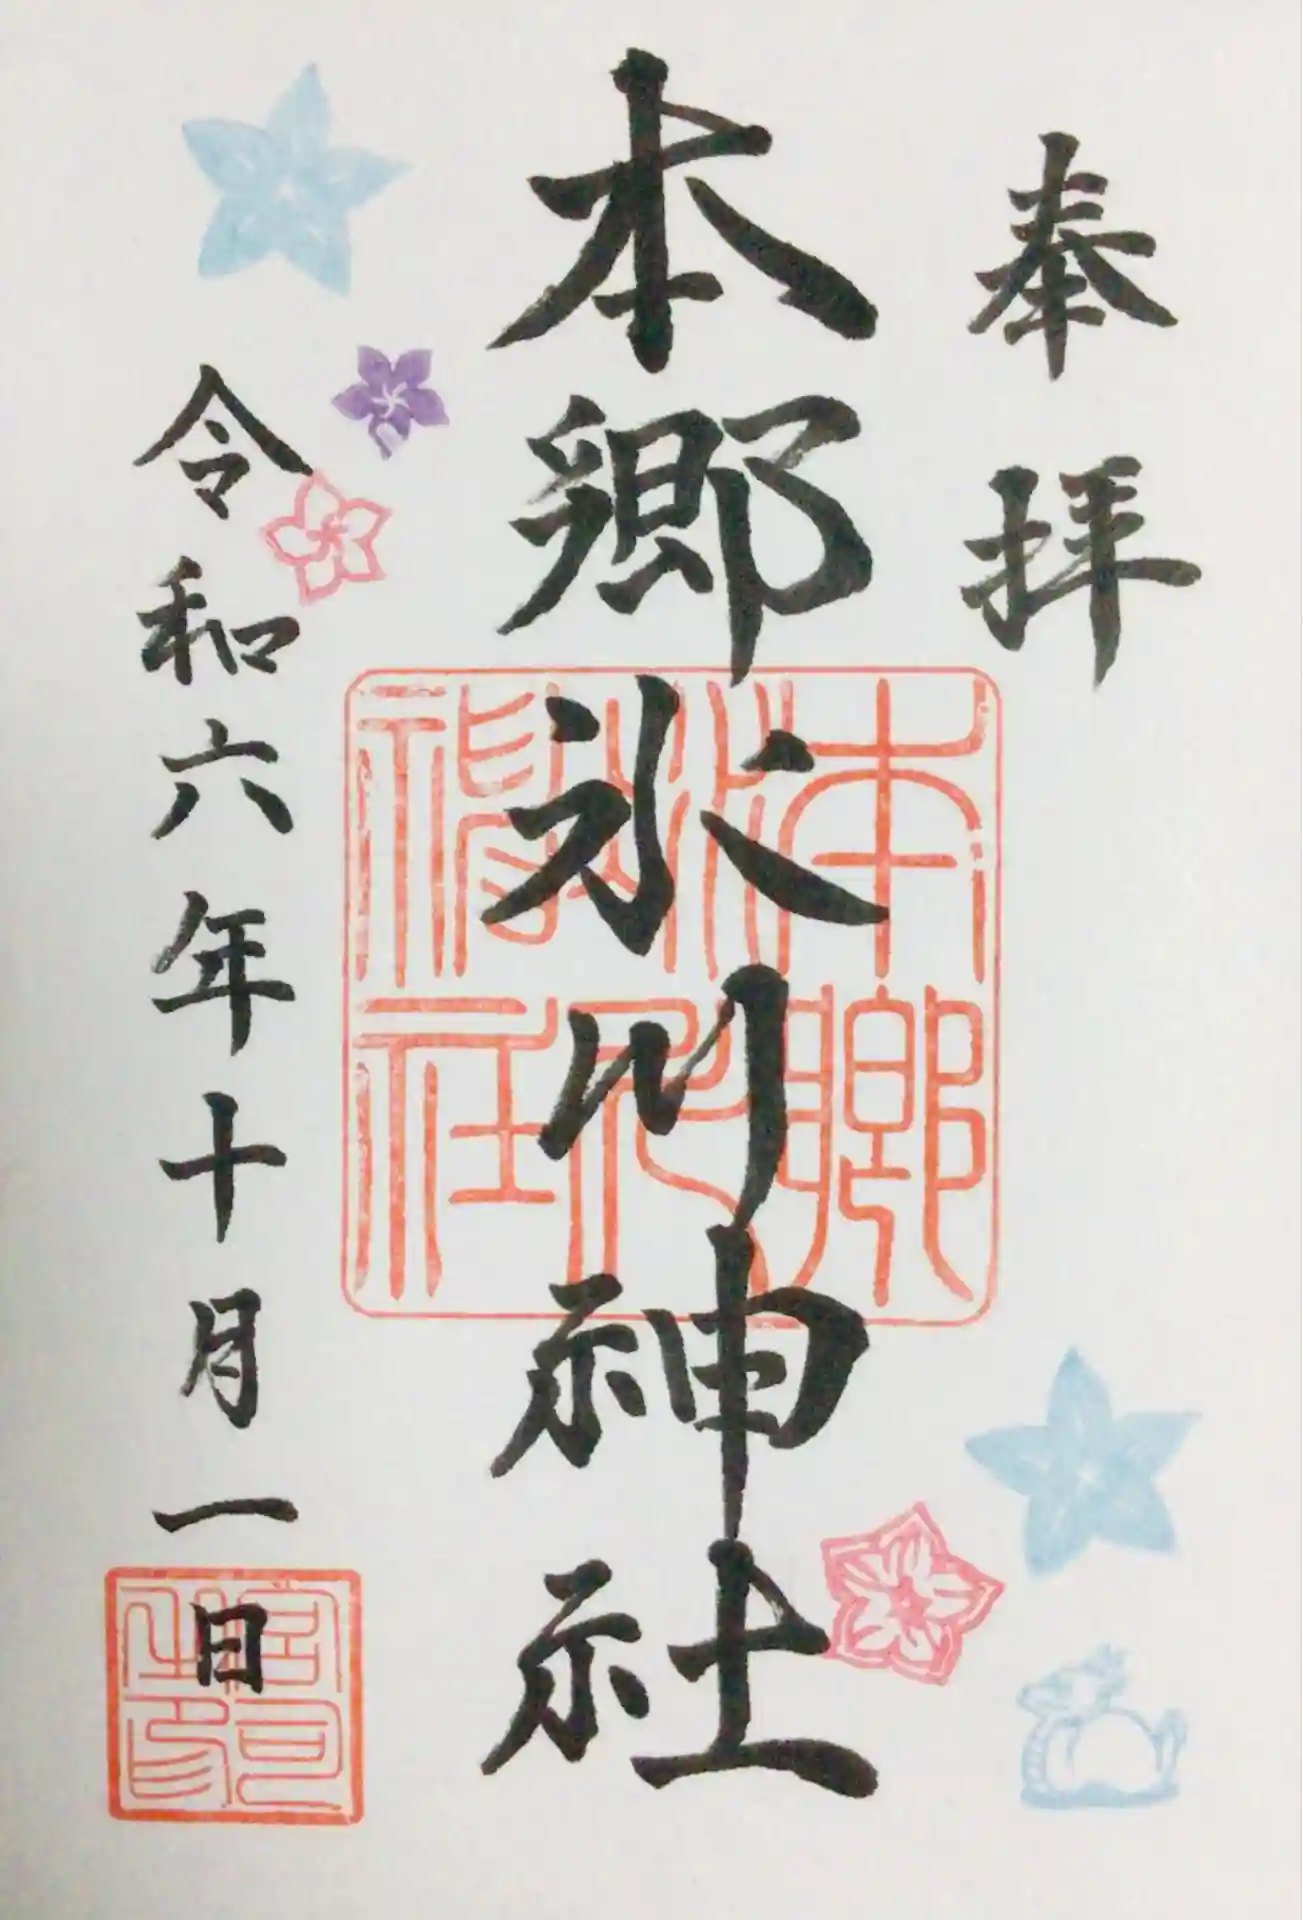 奉拝
本郷氷川神社
令和六年十月一日
本郷
氷川
神社
宮司之印